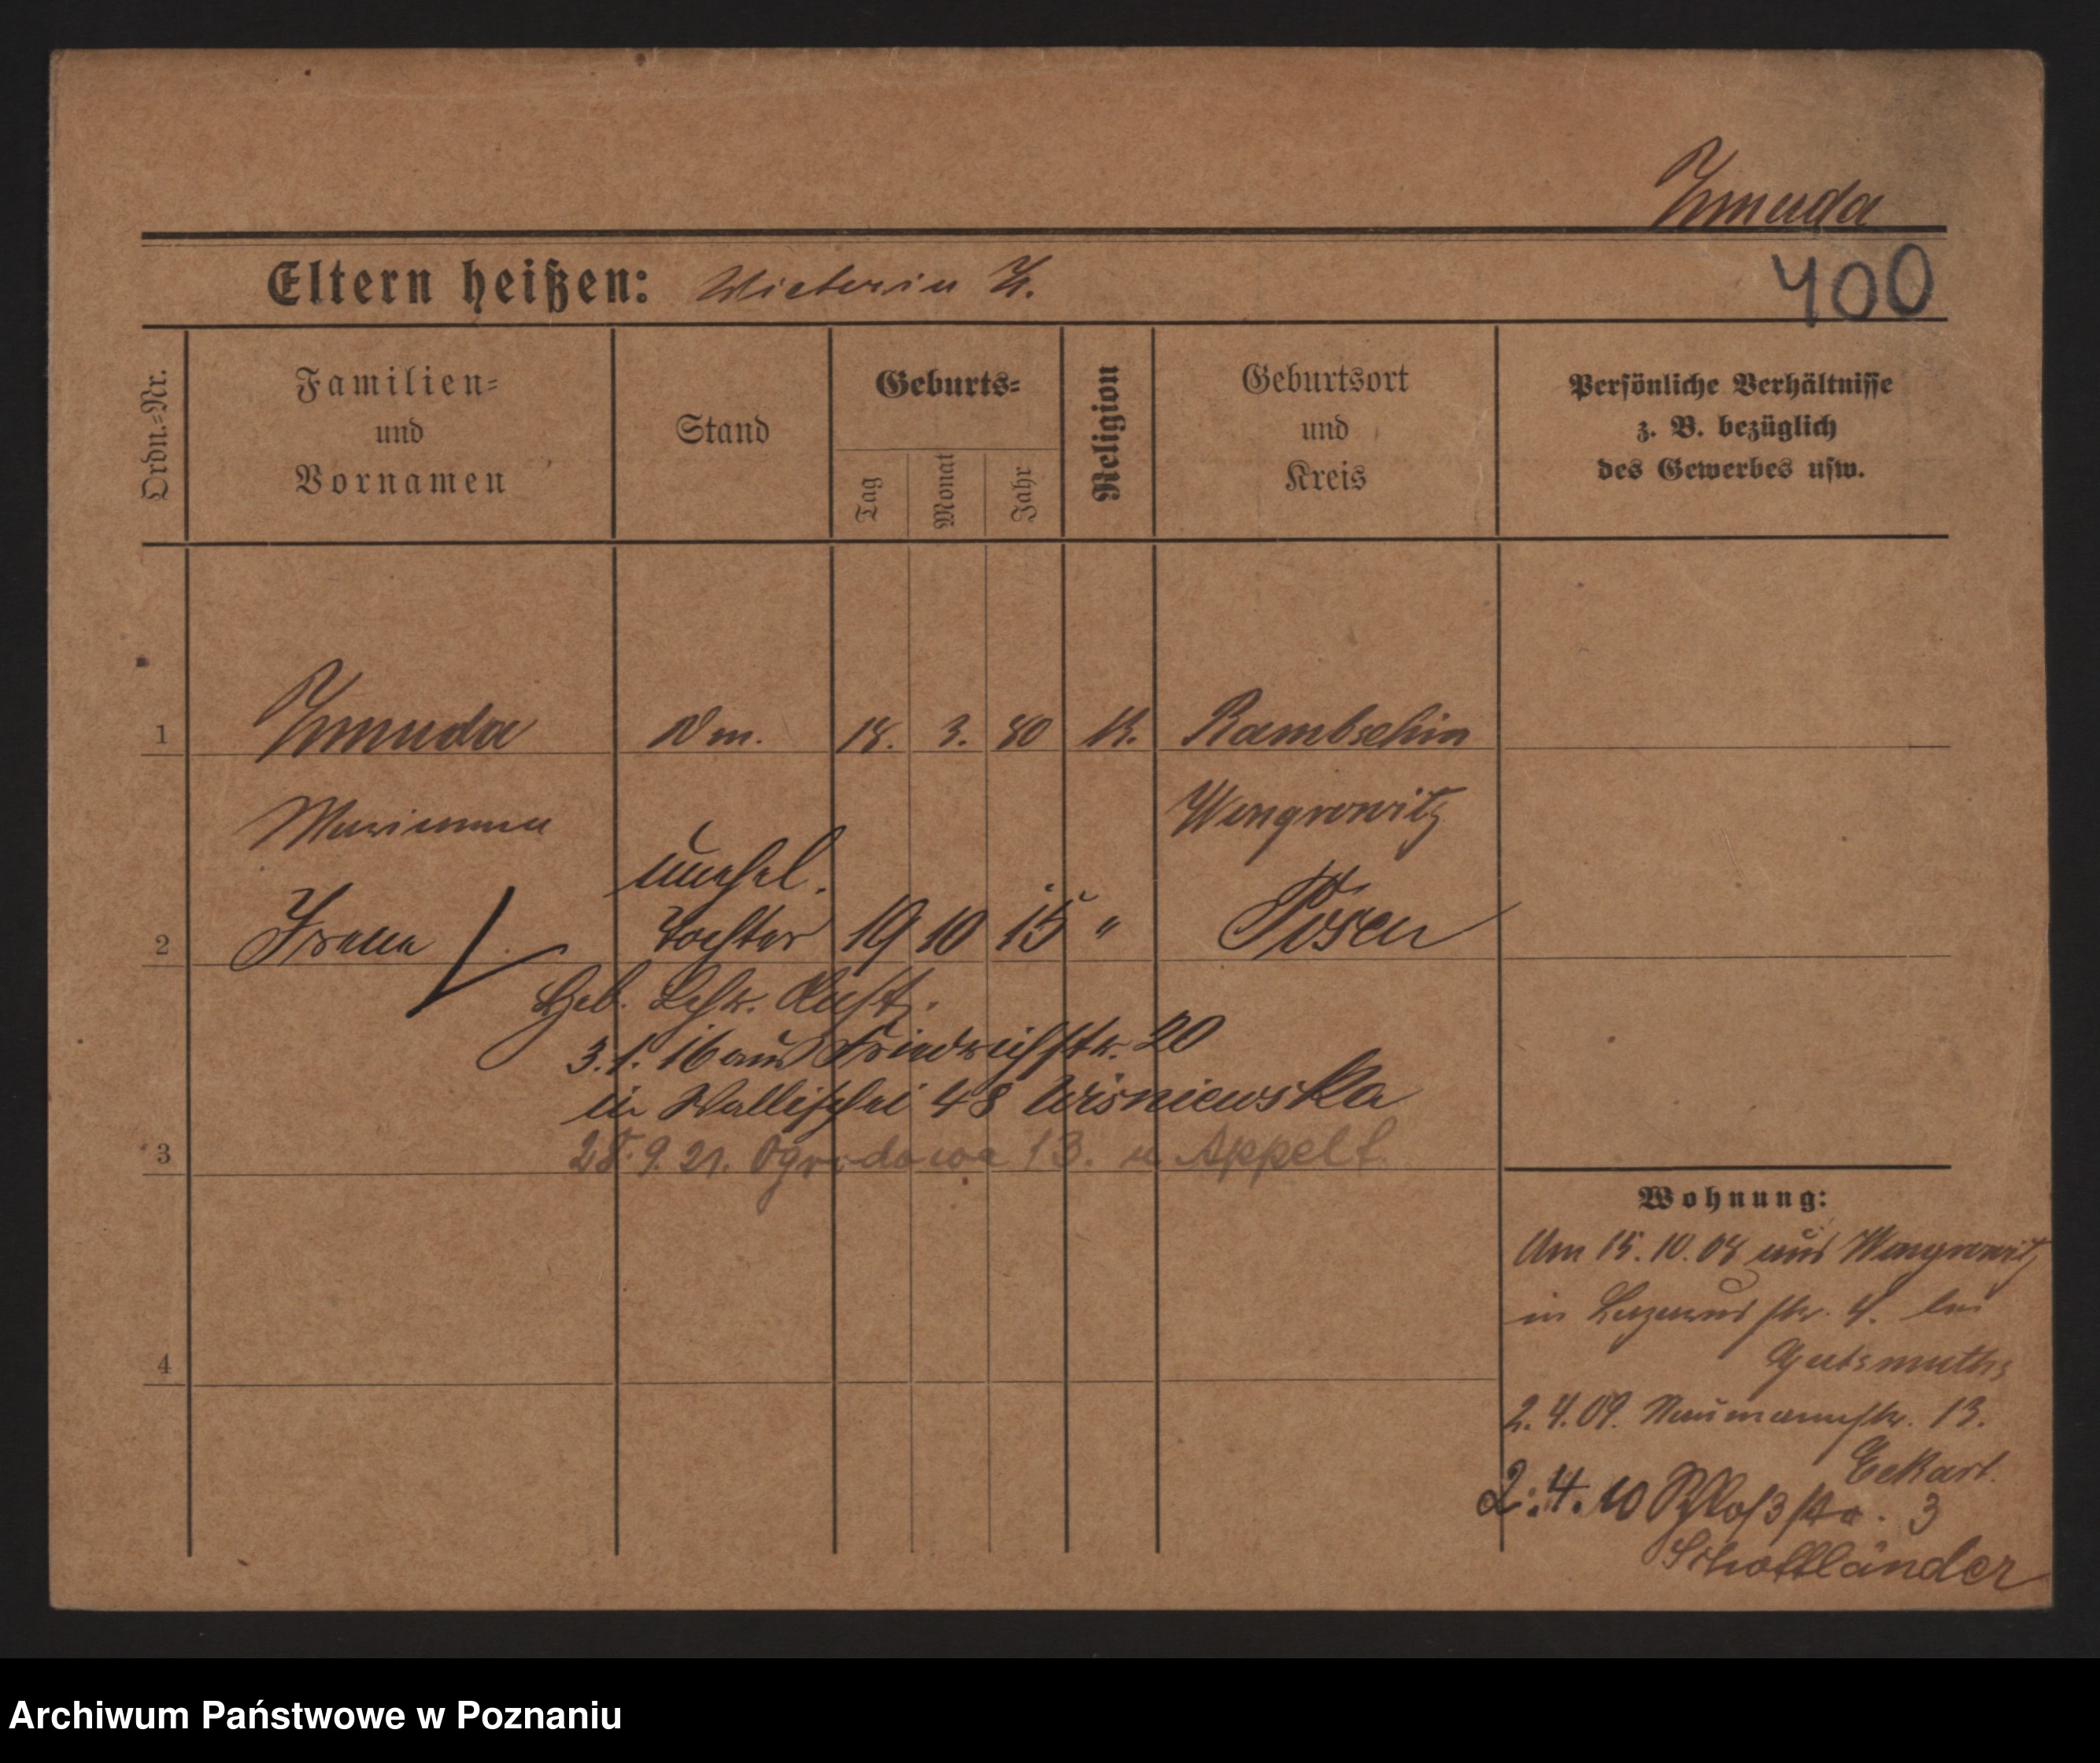 Zmuda
Eltern heißen: Victoria Z.
400
Ordn.-Nr.
Familien- und Vornamen
Stand
Geburts-
Tag
Monat
Jahr
Religion
Geburtsort und Kreis
Persönliche Verhältnisse
z. B. bezüglich
des Gewerbes usw.
1 Zmuda 18. 3. 80 K. Rombschin
Marianna Wongrowitz
unehel.
2 Irena Tochter 19 10 15 " Posen
Geb.
3.1.16 aus Friedrichstr. 20
in Wallischei 48 Wisniewska
3
28.9.21. Ogrodowa 13. u Appelt
Wohnung:
Am 15.10.08 aus Wongrowitz
in Lazarusstr. 4. bei
Gutsmuths
2.4.09. Naumannstr. 13.
Eckart.
2.4.10 Schloßstr. 3
Schottländer
4
Archiwum Państwowe w Poznaniu